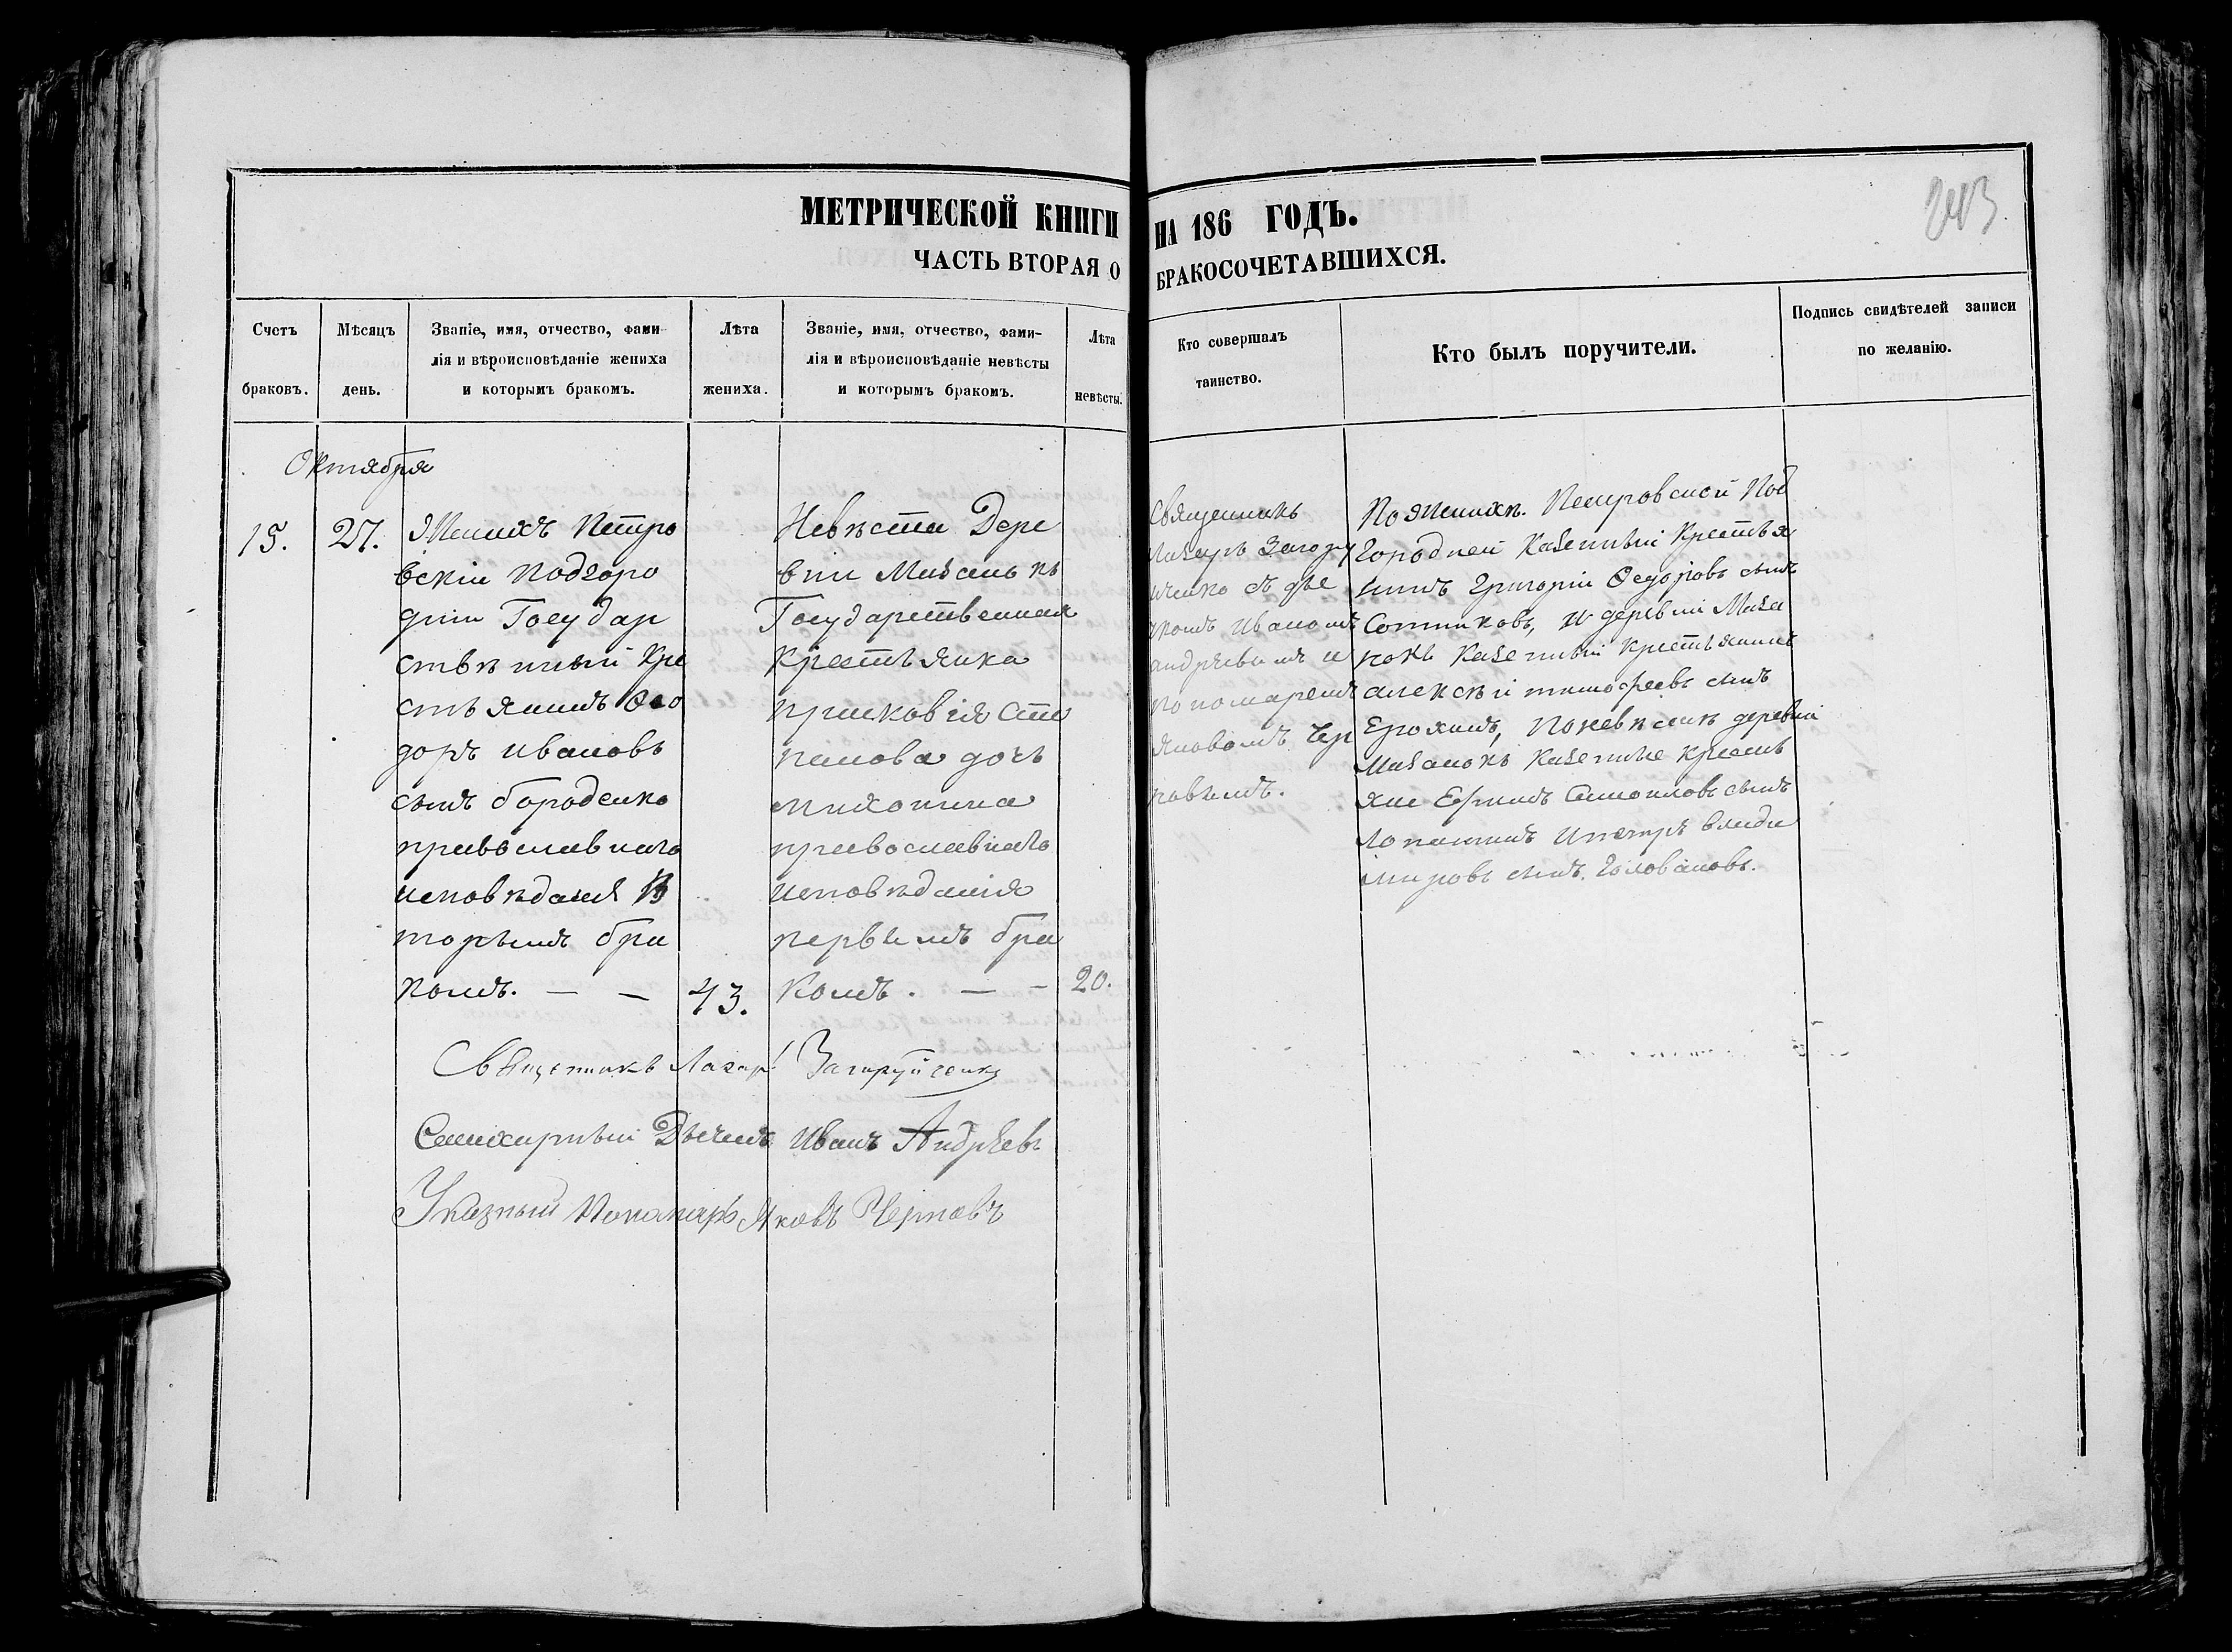 МЕТРИЧЕСКОЙ КНИГИ НА 186 ГОДЪ.
ЧАСТЬ ВТОРАЯ О БРАКОСОЧЕТАВШИХСЯ.
203
Счетъ
браковъ.
Мѣсяцъ
день.
Званіе, имя, отчество, фами-
лія и вѣроисповѣданіе жениха
и которымъ бракомъ.
Лѣта
жениха.
Званіе, имя, отчество, фами-
лія и вѣроисповѣданіе невѣсты
и которымъ бракомъ.
Лѣта
невѣсты.
Кто совершалъ
таинство.
Кто былъ поручители.
Подпись свидѣтелей записи
по желанію.
Октября
15.
27.
Женихъ Петро
вскій Подгоро
дній Государ
ствѣнный Кре
стьянинъ Ѳео
доръ Ивановъ
сынъ Бороденко
православнаго
исповѣданія В
торымъ бра
комъ. — —
43.
Невѣста Дере
вни Мазанокъ
Государственная
Крестьянка
Прасковія Сте
панова дочь
Михонина
православнаго
исповѣданія
первымъ бра
комъ. — —
20.
Священникъ
Лазарь Загору
йченко съ дья
чкомъ Иваномъ
Андрѣевымъ и
пономаремъ
Яковомъ Чер
новымъ.
По Женихѣ. Петровской Под
городней Казенный Крестья
нинъ Григорій Ѳедоровъ сынъ
Сотниковъ, и деревни Маза
нокъ Казенный Крестьянинъ
Алексѣй Тимофеевъ сынъ
Ерохинъ, По невѣстѣ деревни
Мазанокъ Казенные Кресть
яне Ефимъ Самоиловъ сынъ
Лопатинъ и Петръ Влади
мировъ сынъ Головановъ.
Священникъ Лазарь Загоруйченко
Семинарный Дьячекъ Иванъ Андрѣевъ
Указный Пономарь Яковъ Черновъ